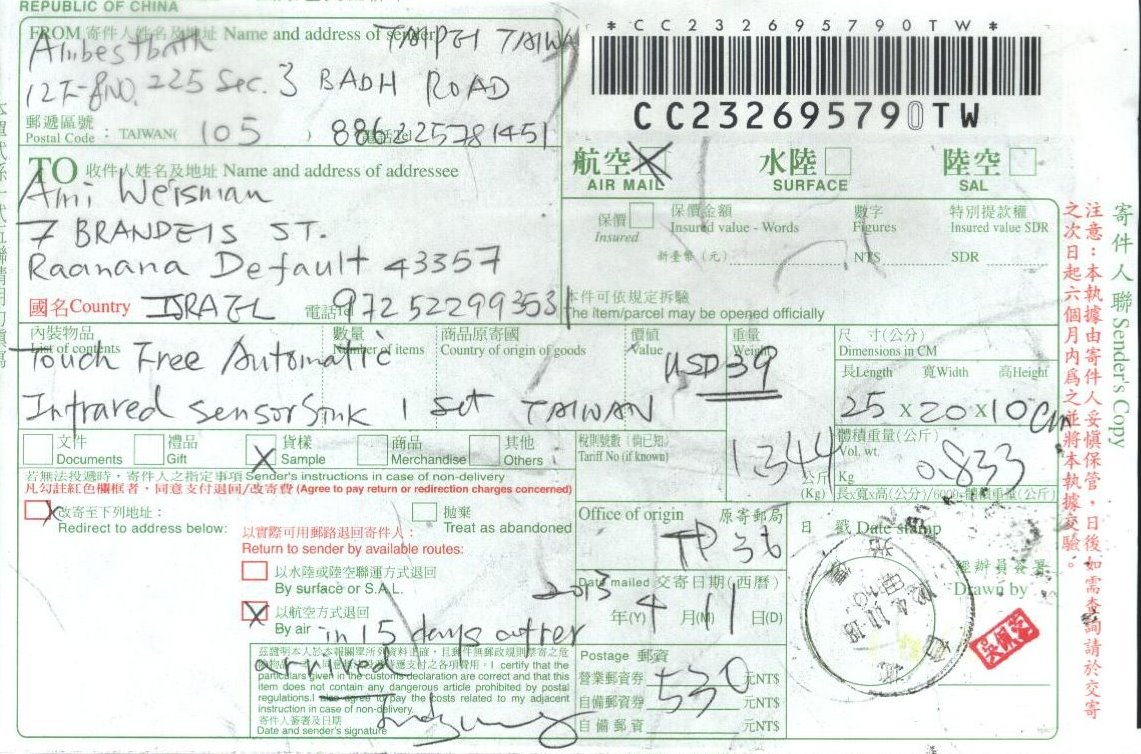 REPUBLIC OF CHINA
FROM 寄件人姓名及地址 Name and address of sender
TAIPEI TAIWAN
12F-8NO. 225 Sec. 3 BADH ROAD
郵遞區號
Postal Code : TAIWAN( 105 ) 電話Tel 886225781451
TO 收件人姓名及地址 Name and address of addressee
Ami Weisman
7 BRANDEIS ST.
Raanana Default 43357
國名Country ISRAEL 電話Tel 972522993531
*CC232695790TW*
CC232695790TW
航空 AIR MAIL
水陸 SURFACE
陸空 SAL
保價 Insured
保價金額 Insured value - Words
數字 Figures
特別提款權 Insured value SDR
新臺幣（元） NT$ SDR
本件可依規定拆驗
The item/parcel may be opened officially
內裝物品 List of contents
數量 Number of items
商品原寄國 Country of origin of goods
價值 Value
重量 Weight
尺 寸(公分) Dimensions in CM
長Length 寬Width 高Height
Touch Free Automatic
Infrared sensor sink 1 set TAIWAN
USD 39
25 X 20 X 10 cm
1,344 公斤 (Kg)
體積重量(公斤)
Vol. wt.
Kg 0.833
長x寬x高(公分)/6000=體積重量(公斤)
稅則號數（倘已知）
Tariff No (if known)
文件 Documents
禮品 Gift
貨樣 Sample
商品 Merchandise
其他 Others
若無法投遞時，寄件人之指定事項 Sender's instructions in case of non-delivery
凡勾註紅色欄框者，同意支付退回/改寄費 (Agree to pay return or redirection charges concerned)
改寄至下列地址：
Redirect to address below:
拋棄
Treat as abandoned
以實際可用郵路退回寄件人：
Return to sender by available routes:
以水陸或陸空聯運方式退回
By surface or S.A.L.
以航空方式退回
By air in 15 days after
arrival
particulars given in the customs declaration are correct and that this
item does not contain any dangerous article prohibited by postal
regulations. I also agree to pay the costs related to my adjacent
instruction in case of non-delivery.
寄件人簽署及日期
Date and sender's signature
Office of origin 原寄郵局
TP 36
Date mailed 交寄日期(西曆)
2013 年(Y) 4 月(M) 11 日(D)
Postage 郵資
530
營業郵資券 元NT$
自備郵資券 元NT$
自備郵資 元NT$
日 戳 Date stamp
經辦員簽署
Drawn by
寄件人聯 Sender's Copy
注意：本執據由寄件人妥慎保管，日後如需查詢請於交寄
之次日起六個月內為之並將本執據交驗。